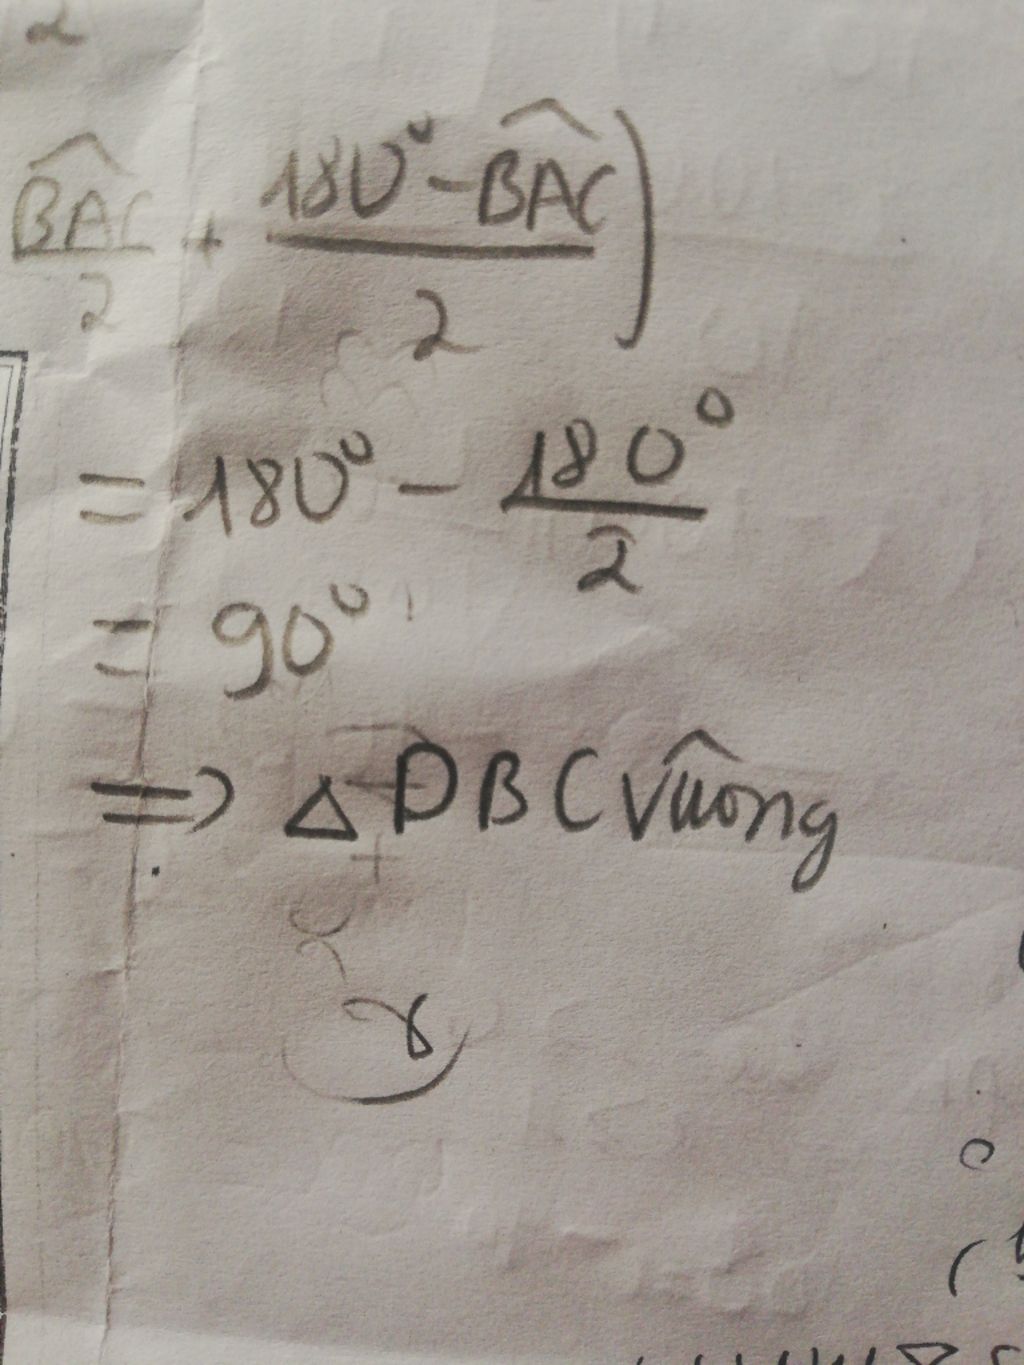 2
BAC/2 + (180° - BAC)/2 )
= 180° - 180°/2
= 90°
=> Δ DBC vuông